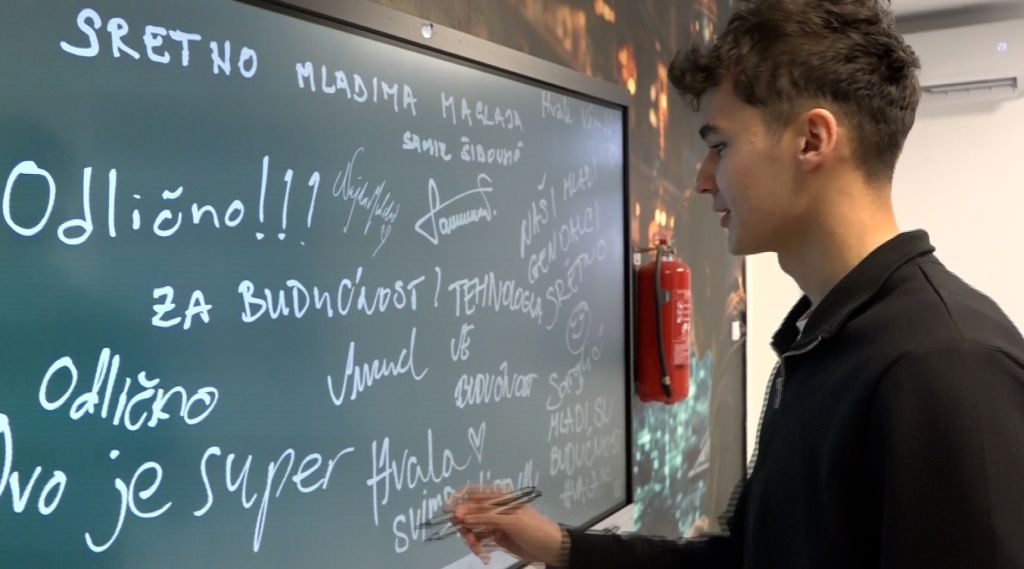 SRETNO MLADIMA MAGLAJA
SAMIR ŠIBONJIĆ
Hvala Vam
Odlično!!!
NAŠI MLADI
GENIJALCI
SRETNO
ZA BUDUĆNOST!
TEHNOLOGIJA
JE
BUDUĆNOST
Odlično
MLADI SU
BUDUĆNOST
Ovo je super
Hvala
svima